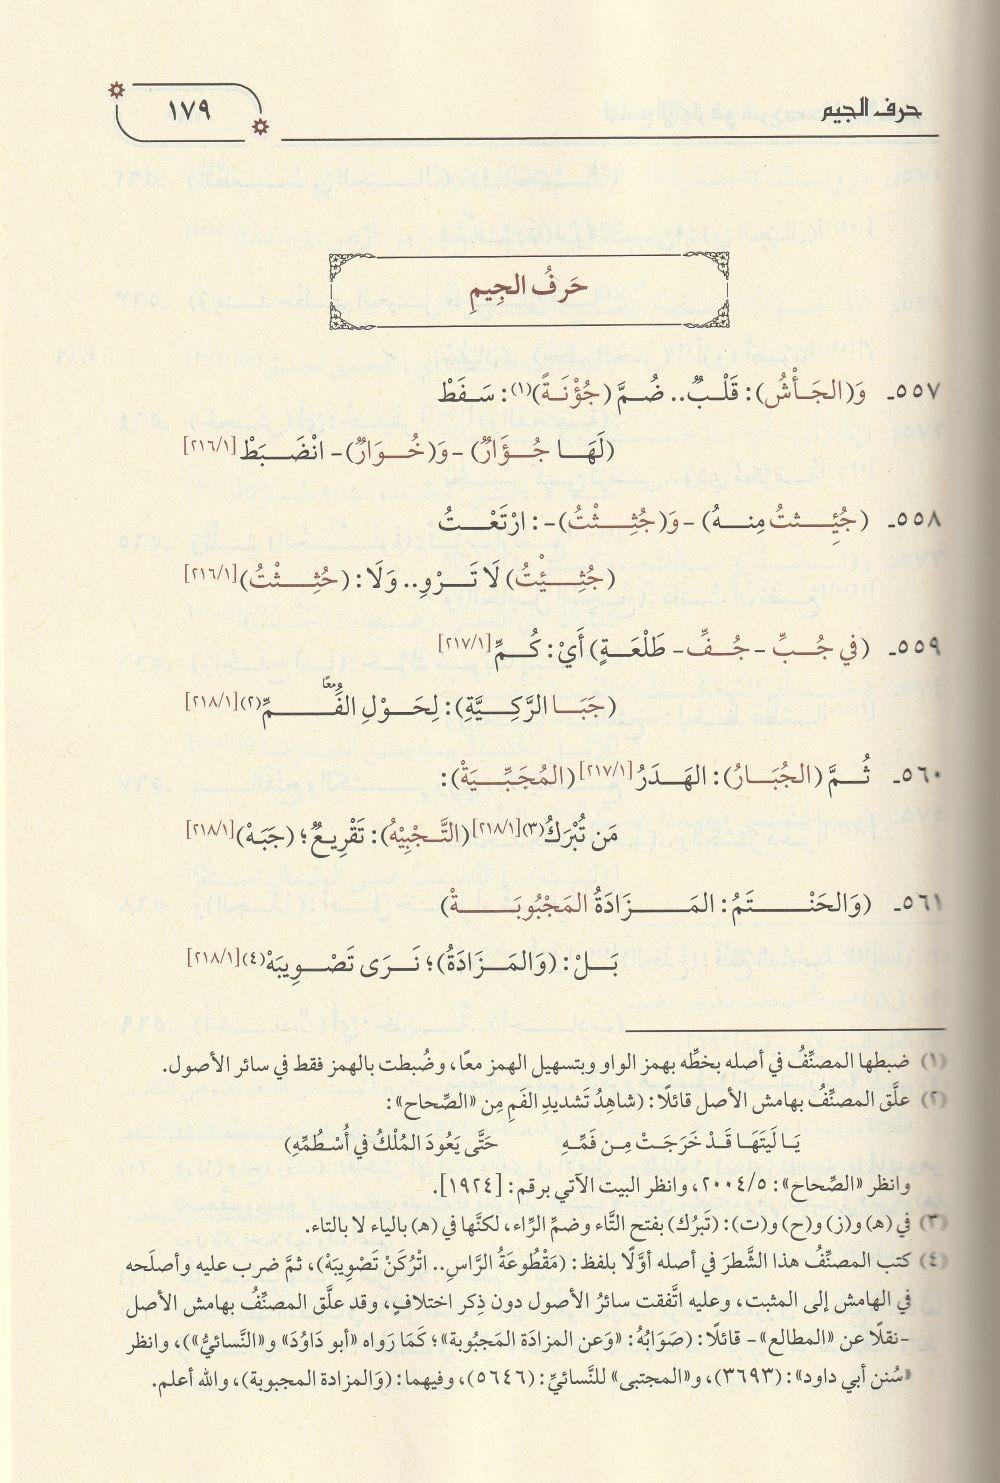 حرف الجيم
١٧٩
حَرفُ الجِيمِ
٥٥٧- وَ(الجَأْشُ): قَلْبٌ.. ضُمَّ (جُؤْنَةً)(١): سَفَطْ
(لَهَا جُؤَارٌ) -وَ(خُوَارٌ)- انْضَبَطْ [٢١٦/١]
٥٥٨- (جُئِثتُ مِنهُ) -وَ(جُثِثْتُ)-: ارْتَعْتُ
(جُثِيْتُ) لَا تَرْوِ.. وَلَا: (حُثِثْتُ) [٢١٦/١]
٥٥٩- (في جُبِّ -جُفِّ- طَلْعَةٍ) أَيْ: كُمِّ [٢١٧/١]
(جَبَا الرَّكِيَّةِ): لِحَوْلِ الفَُمِّ معًا (٢) [٢١٨/١]
٥٦٠- ثُمَّ (الجُبَارُ): الهَدَرُ [٢١٧/١] (المُجَبِّيَةْ):
مَن تُبْرَكُ (٣) [٢١٨/١] (التَّجْبِيْهُ): تَقْرِيعٌ؛ (جَبَهْ) [٢١٨/١]
٥٦١- (وَالحَنْتَمُ: المَزَادَةُ المَجْبُوبَةْ)
بَلْ: (وَالمَزَادَةُ)؛ نَرَى تَصْوِيبَهْ (٤) [٢١٨/١]
(١) ضبطها المصنِّفُ في أصله بخطِّه بهمز الواو وبتسهيل الهمز معًا، وضُبطت بالهمز فقط في سائر الأصول.
(٢) علَّق المصنِّفُ بهامش الأصل قائلًا: (شاهِدُ تَشديدِ الفَمِ مِن «الصِّحاح»:
يَا لَيتَهَا قَدْ خَرَجَتْ مِن فَمِّهِ حَتَّى يَعُودَ المُلْكُ في أُسْطُمِّهِ)
وانظر «الصِّحاح»: ٢٠٠٤/٥، وانظر البيت الآتي برقم: [١٩٢٤].
(٣) في (ه) و(ز) و(ح) و(ت): (تَبرُك) بفتح التَّاء وضمِّ الرَّاء، لكنَّها في (ه) بالياء لا بالتاء.
(٤) كتب المصنِّفُ هذا الشَّطرَ في أصله أوَّلًا بلفظ: (مَقْطُوعَةُ الرَّاسِ.. اتْرُكَنْ تَصْوِيبَهْ)، ثمَّ ضرب عليه وأصلَحه
في الهامش إلى المثبت، وعليه اتَّفقت سائرُ الأصول دون ذِكر اختلافٍ، وقد علَّق المصنِّفُ بهامش الأصل
-نقلًا عن «المطالع»- قائلًا: (صَوَابُهُ: «وَعن المزادَة المَجبُوبة»؛ كمَا رَواه «أبو دَاوُدَ» و«النَّسائيُّ»)، وانظر
«سُنن أبي داود»: (٣٦٩٣)، و«المجتبى» للنَّسائيِّ: (٥٦٤٦)، وفيهما: (وَالمزادة المجبوبة)، والله أعلم.